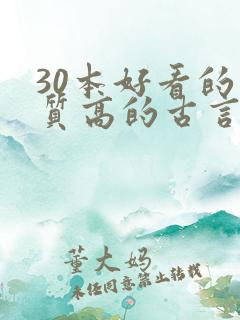 30本好看的
质高的古言
董大妈
未经同意禁止转载